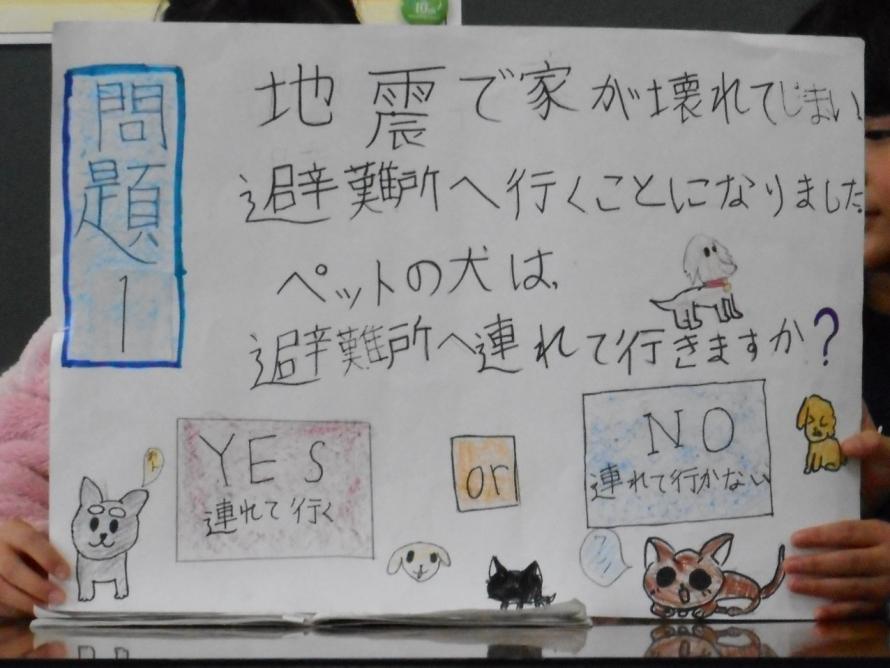 問題1
地震で家が壊れてしまい
避難所へ行くことになりました
ペットの犬は、
避難所へ連れて行きますか?
YES
連れて行く
or
NO
連れて行かない